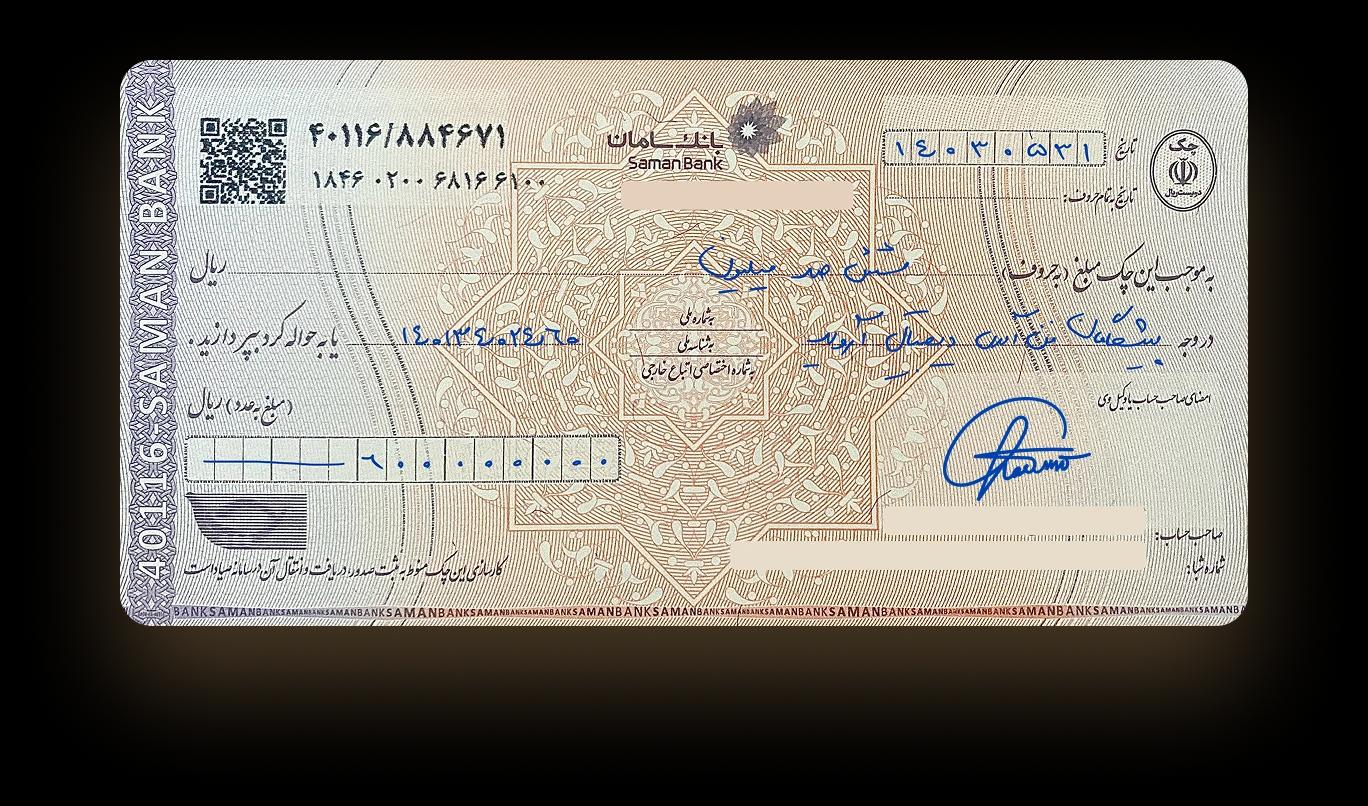 ۴۰۱۱۶/۸۸۴۶۷۱
۱۸۴۶ ۰۲۰۰ ۶۸۱۶ ۶۱۰۰
بانک سامان
Saman Bank
تاریخ ۱۴۰۳۰۵۳۱
تاریخ به تمام حروف:
چک
دویست ریال
به موجب این چک مبلغ (به حروف) شش صد میلیون ریال
در وجه پیشگامان فن آسا دیجیتال
به شماره ملی
به شناسه ملی
به شماره اختصاصی اتباع خارجی
یا به حواله کرد بپردازید.
امضای صاحب حساب یا وکیل وی
(مبلغ به عدد) ریال
۶۰۰۰۰۰۰۰۰
صاحب حساب:
شماره شبا:
کارسازی این چک منوط به ثبت صدور، دریافت و انتقال آن در سامانه صیاد است
40116-SAMAN BANK
BANKSAMANBANKSAMANBANKSAMANBANKSAMANBANK